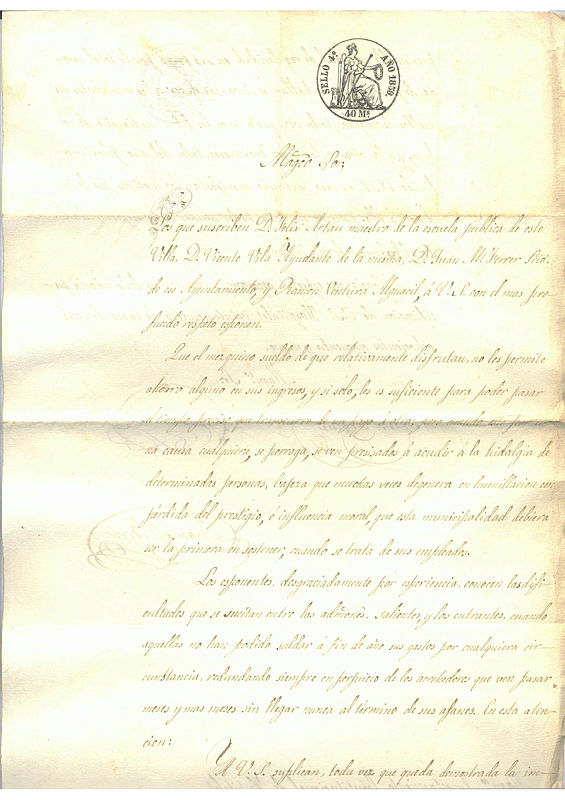 SELLO 4º AÑO 1859.
40 Ms
Magco Sor;
Los que suscriben D. Felix Artau maestro de la escuela publica de esta
Villa. D. Vicente Vila Ayudante de la misma, D. Juan M. Ferrer Srio.
de su Ayuntamiento, y Ramon Ventura Alguacil, á V. S. con el mas pro-
fundo respeto esponen.
Que el mezquino sueldo de que relativamente disfrutan, no les permite
ahorro alguno en sus ingresos, y si solo, les es suficiente para poder pasar
el tiempo preciso que transcurre de un pago á otro; pero cuando por
una causa cualquiera, se porroga, se ven presisados á acudir á la hidalgia de
determinadas personas, bajeza que muchas veces degenera en humillacion con
pérdida del prestigio, é influencia moral, que esta municipalidad debiera
ser la primera en sostener; cuando se trata de sus empleados.
Los esponentes, desgraciadamente por esperiencia, conocen las difi-
cultades que se sucitan entre las salientes, y los entrantes, cuando
aquellas no han podido saldar á fin de año sus gastos por cualquiera cir-
cunstancia, redundando siempre en porjuicio de los acrehedores que ven pasar
meses y mas meses sin llegar nunca al término de sus afanes. En esta aten-
cion:
A V. S. suplican, toda vez que queda demostrada la im-